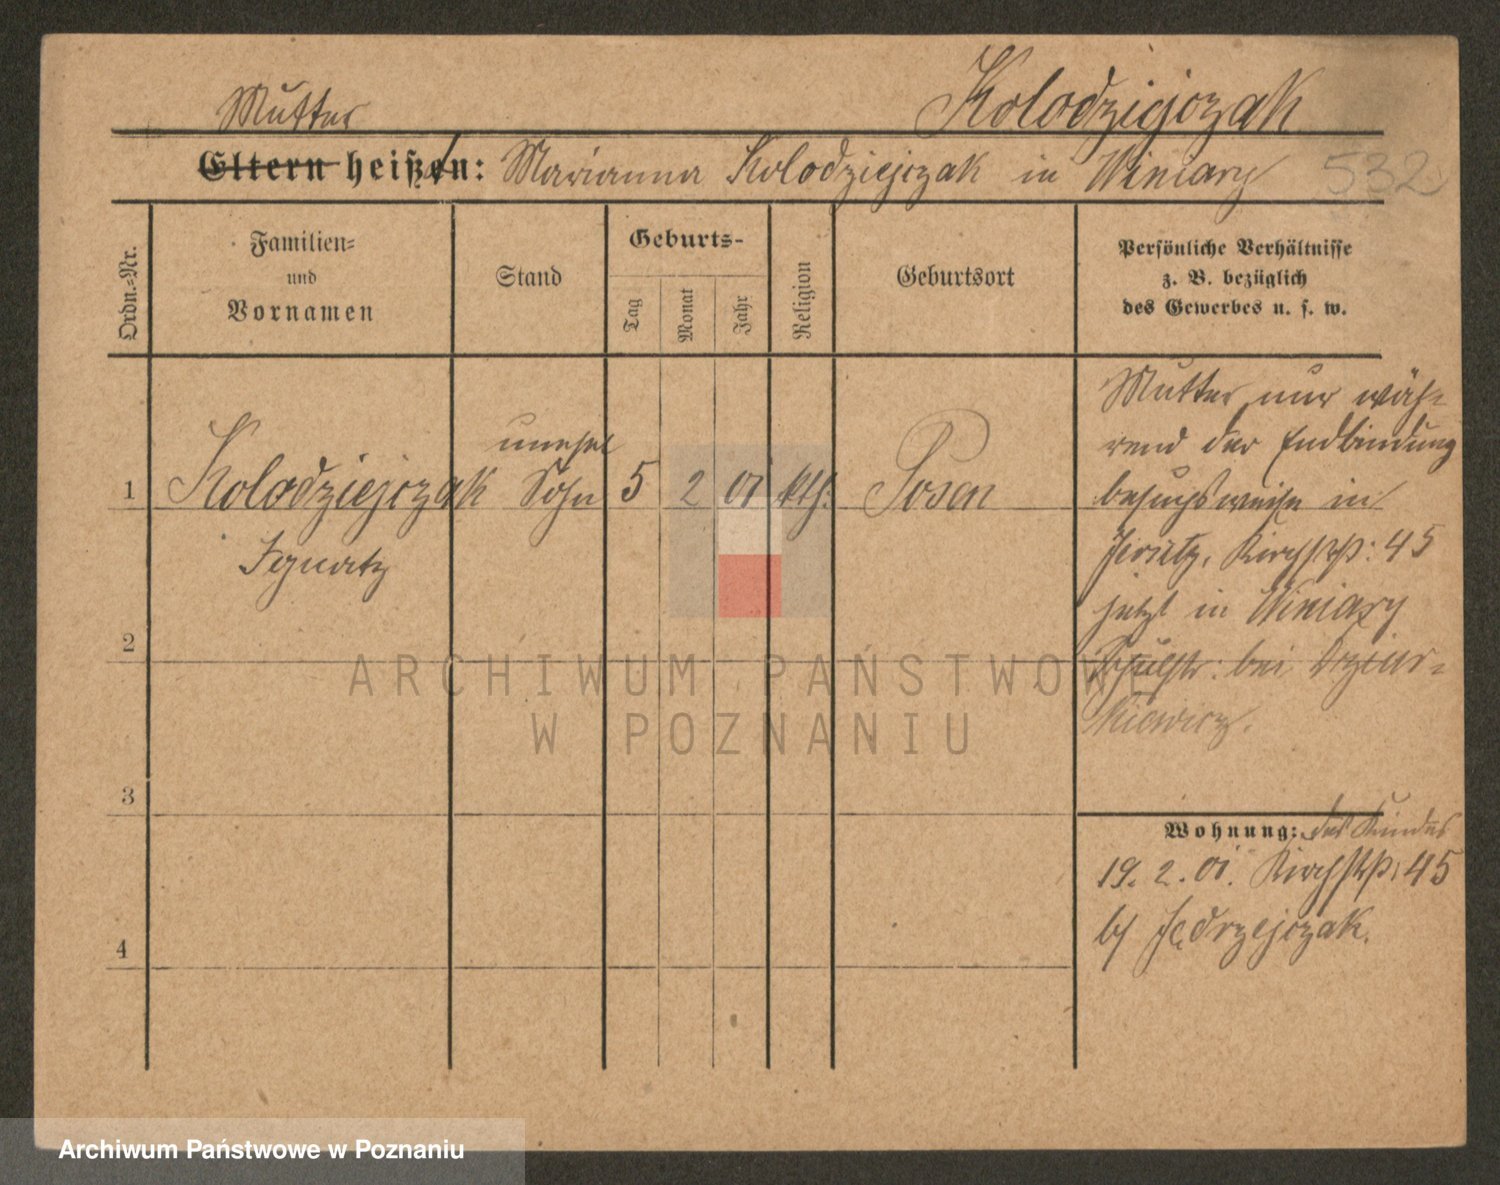 Kolodziejczak
Mutter
Eltern heißen: Marianna Kolodziejczak in Winiary
532
Ordn.-Nr.
Familien-
und
Vornamen
Stand
Geburts-
Tag
Monat
Jahr
Religion
Geburtsort
Persönliche Verhältnisse
z. B. bezüglich
des Gewerbes u. s. w.
1
Kolodziejczak
unehel
Sohn
5
2
01
kth.
Posen
Ignatz
Mutter nur wäh-
rend der Endbindung
besuchsweise in
Jersitz, Kirchstr: 45
jetzt in Winiary
Schulstr: bei
2
3
4
Wohnung: des Kindes
19. 2. 01. Kirchstr: 45
b/ Jędrzejczak.
ARCHIWUM PAŃSTWOWE
W POZNANIU
Archiwum Państwowe w Poznaniu